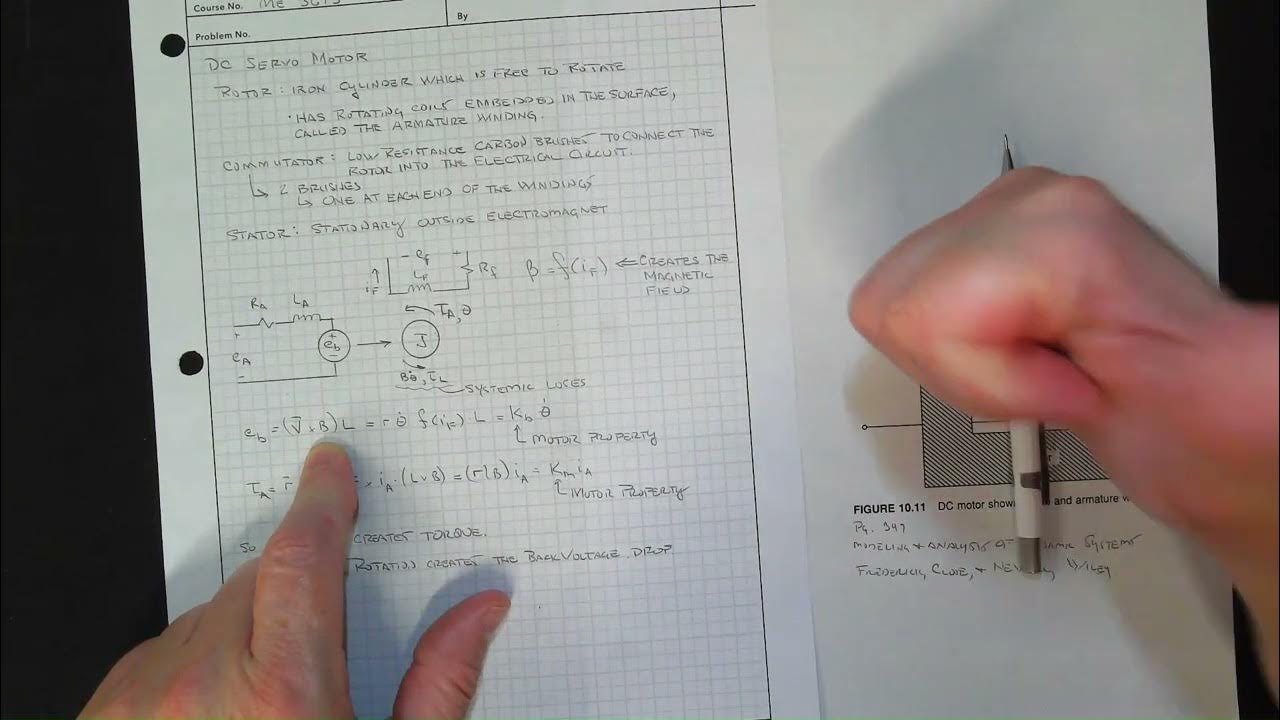 Course No. ME
By
Problem No.
DC SERVO MOTOR
ROTOR: IRON CYLINDER WHICH IS FREE TO ROTATE
• HAS ROTATING COILS EMBEDDED IN THE SURFACE,
CALLED THE ARMATURE WINDING.
COMMUTATOR: LOW RESISTANCE CARBON BRUSHES TO CONNECT THE
ROTOR INTO THE ELECTRICAL CIRCUIT.
↳ 2 BRUSHES
↳ ONE AT EACH END OF THE WINDINGS
STATOR: STATIONARY OUTSIDE ELECTROMAGNET
- e_f +
i_F L_F R_f B = f(i_F) ⇐ CREATES THE
MAGNETIC
FIELD
R_A L_A
τ_A, θ
+ e_A - + e_b - → J
Bθ̇, τ_L SYSTEMIC LOSES
e_b = (V̄ × B) L = r θ̇ f(i_F) L = K_b θ̇
↑ MOTOR PROPERTY
τ_A = r̄ × i_A · (L × B) = (r l B) i_A = K_m i_A
↑ MOTOR PROPERTY
SO CREATES TORQUE.
ROTATION CREATES THE BACK VOLTAGE DROP.
FIGURE 10.11 DC motor and armature
Pg. 347
MODELING & ANALYSIS SYSTEMS
FREDERICK, CLOSE, & WILEY